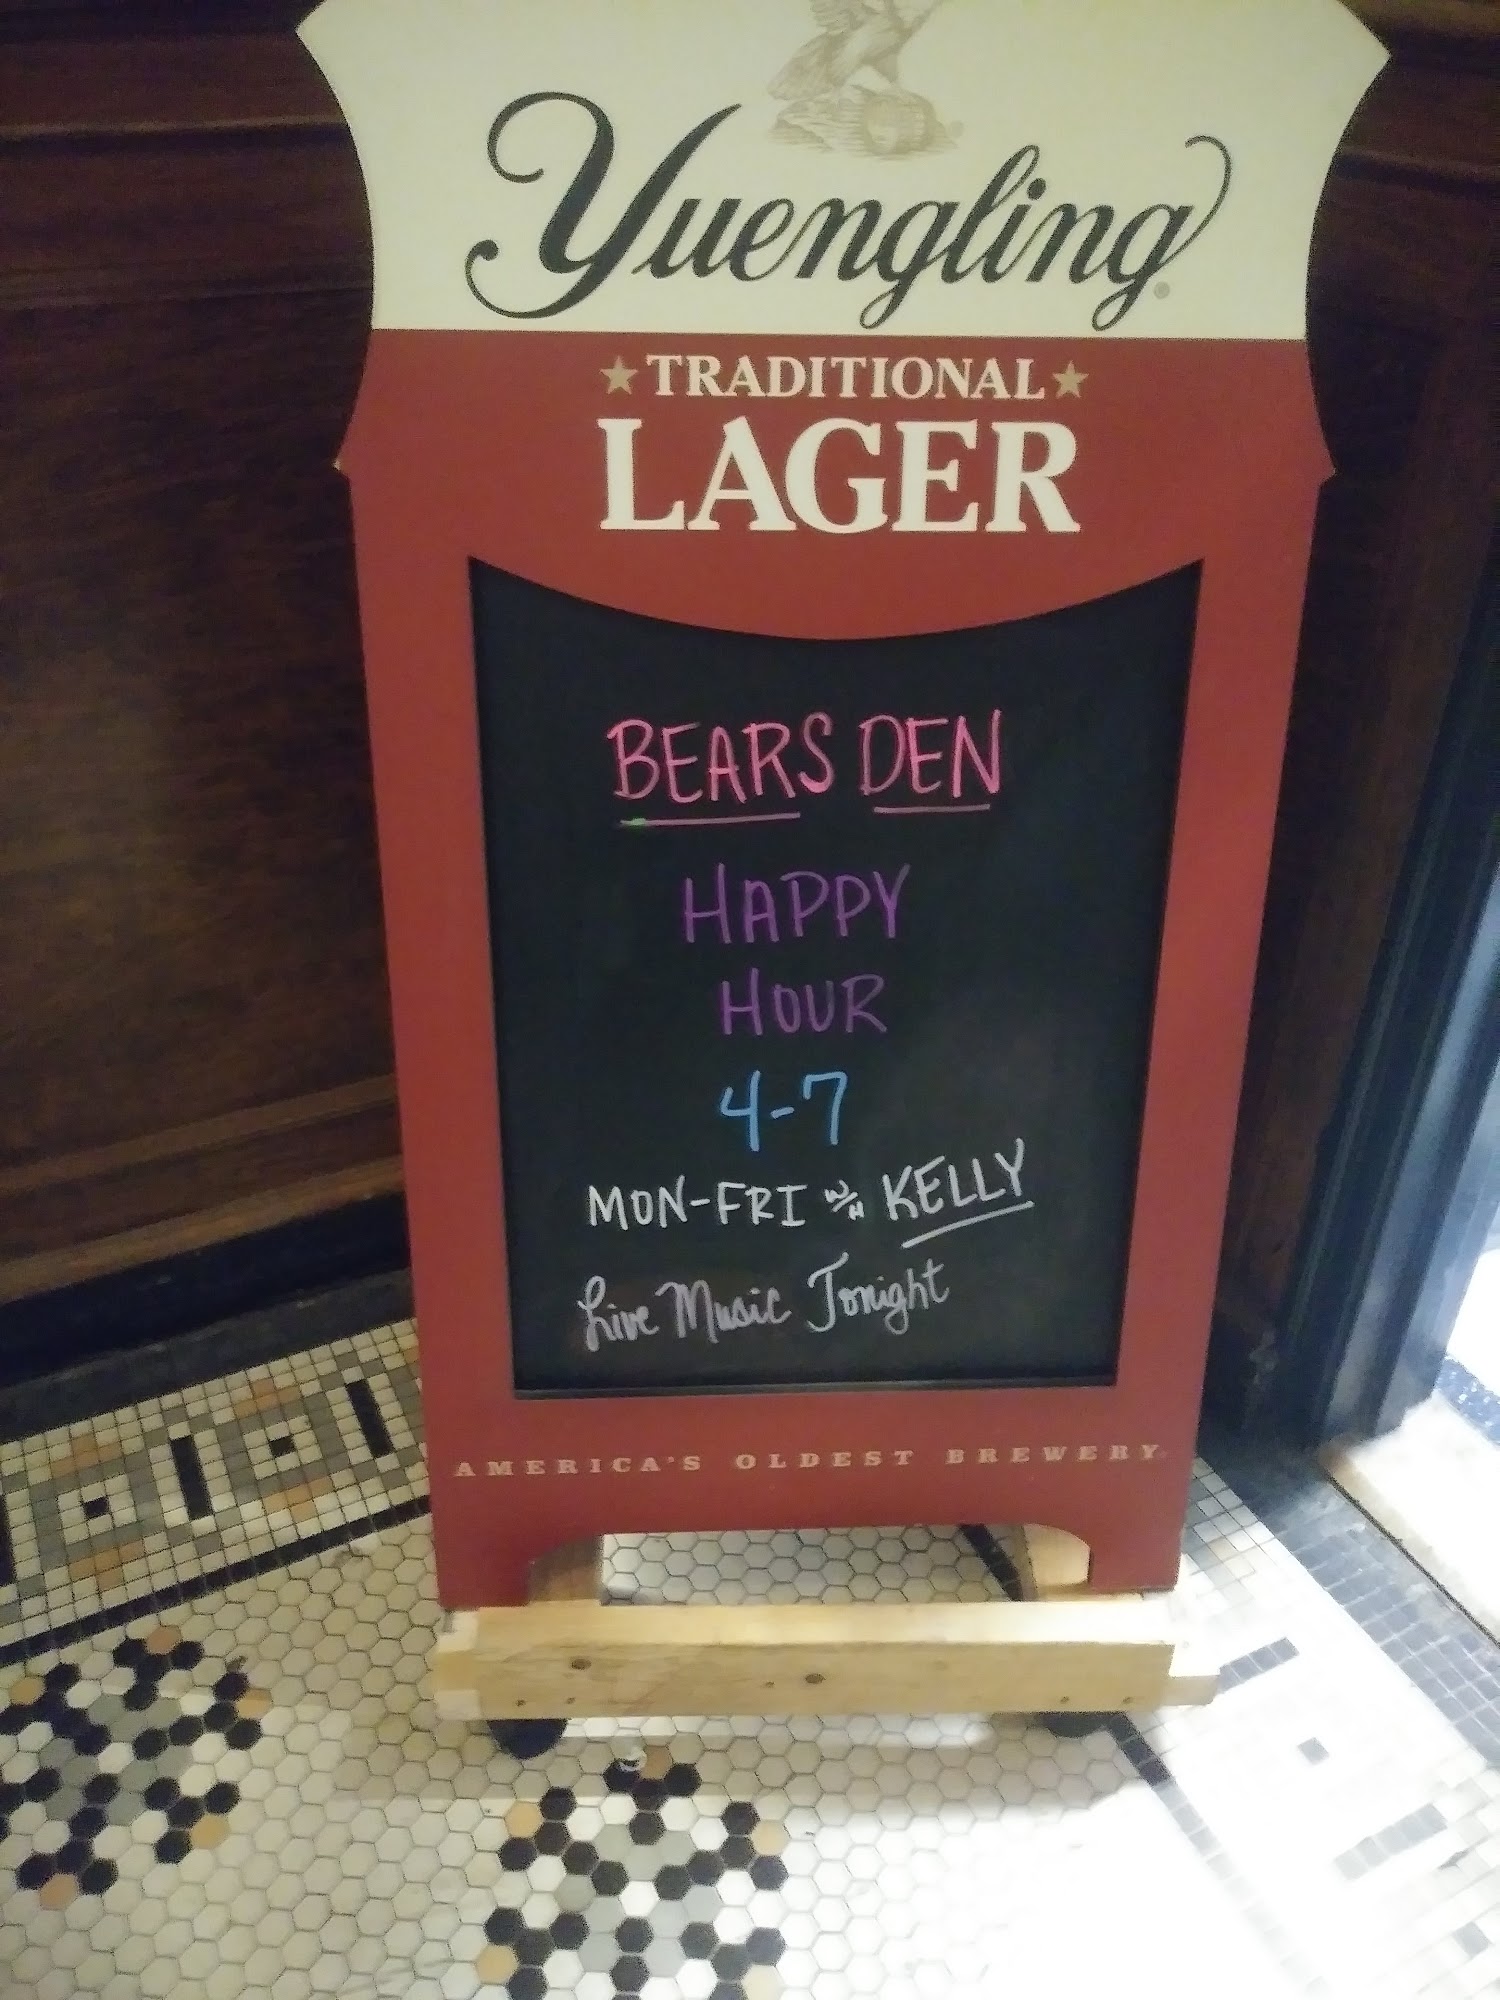 Yuengling
TRADITIONAL
LAGER
BEARS DEN
HAPPY
HOUR
4-7
MON-FRI W/H KELLY
Live Music Tonight
AMERICA'S OLDEST BREWERY